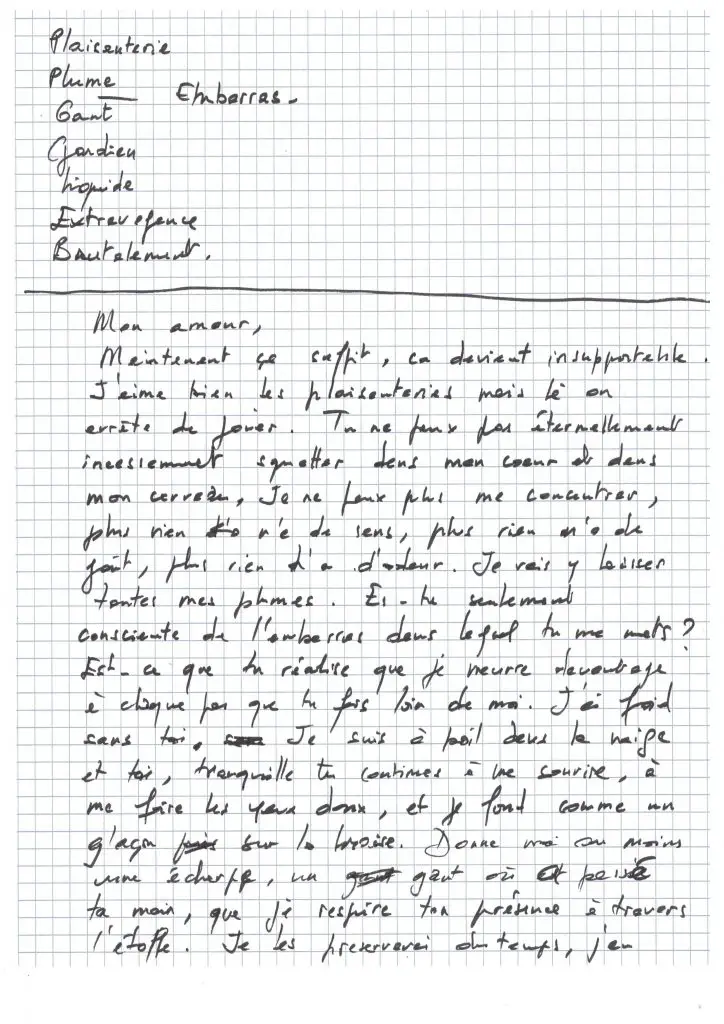 Plaisanterie
Plume
Embarras -
Gant
Gardien
Liquide
Extravagence
Brutalement.
Mon amour,
Maintenant ça suffit, ca devient insupportable.
J'aime bien les plaisanteries mais là on
arrête de jouer. Tu ne peux pas éternellement
squatter dans mon coeur et dans
mon cerveau, Je ne peux plus me concentrer,
plus rien n'a de sens, plus rien n'a de
goût, plus rien d'odeur. Je vais y laisser
toutes mes plumes. Es-tu seulement
consciente de l'embarras dans lequel tu me mets?
Est-ce que tu réalise que je meurre davantage
à chaque pas que tu fais loin de moi. J'ai froid
sans toi, Je suis à poil dans la neige
et toi, tranquille tu continues à me sourire, à
me faire les yeux doux, et je fond comme un
g'açon sur la braise. Donne moi au moins
une écharpe, un gant où
ta main, que je respire ton présence à travers
l'étoffe. Je les preserverai du temps, j'en